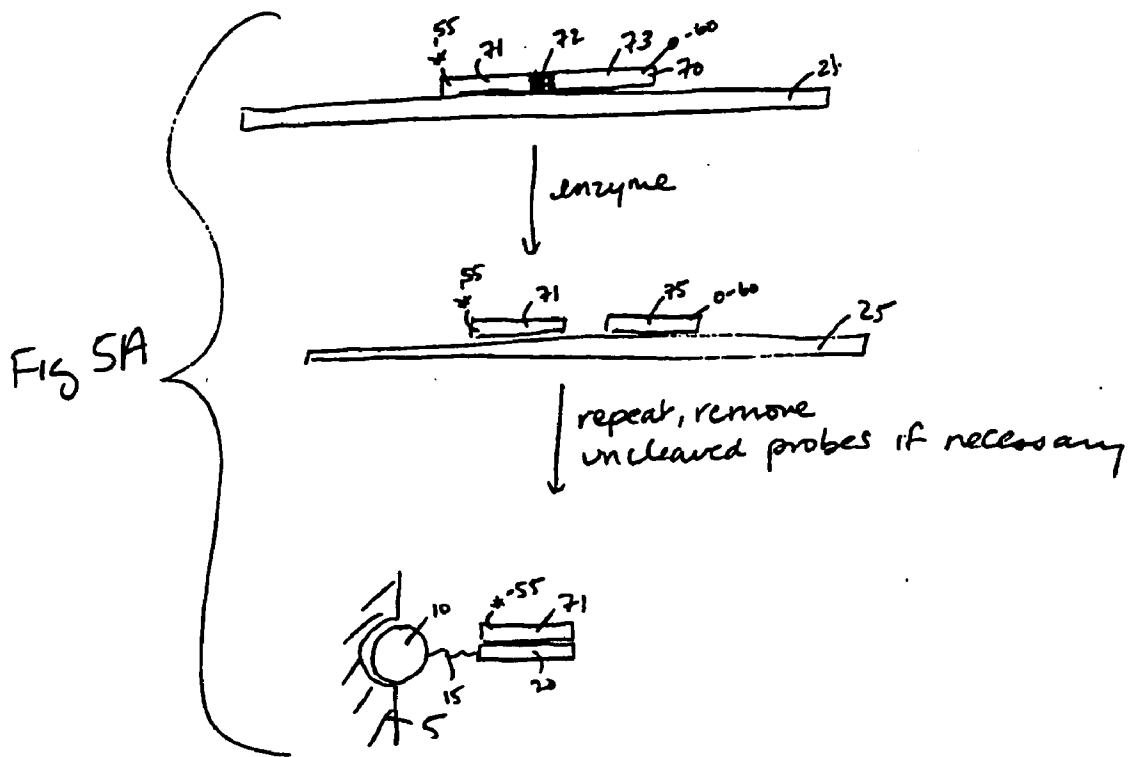 55 71 72 73 60
70 25
enzyme
55 71 75 60 25
Fig 5A
repeat, remove
uncleaved probes if necessary
10 55 71
15 20
5